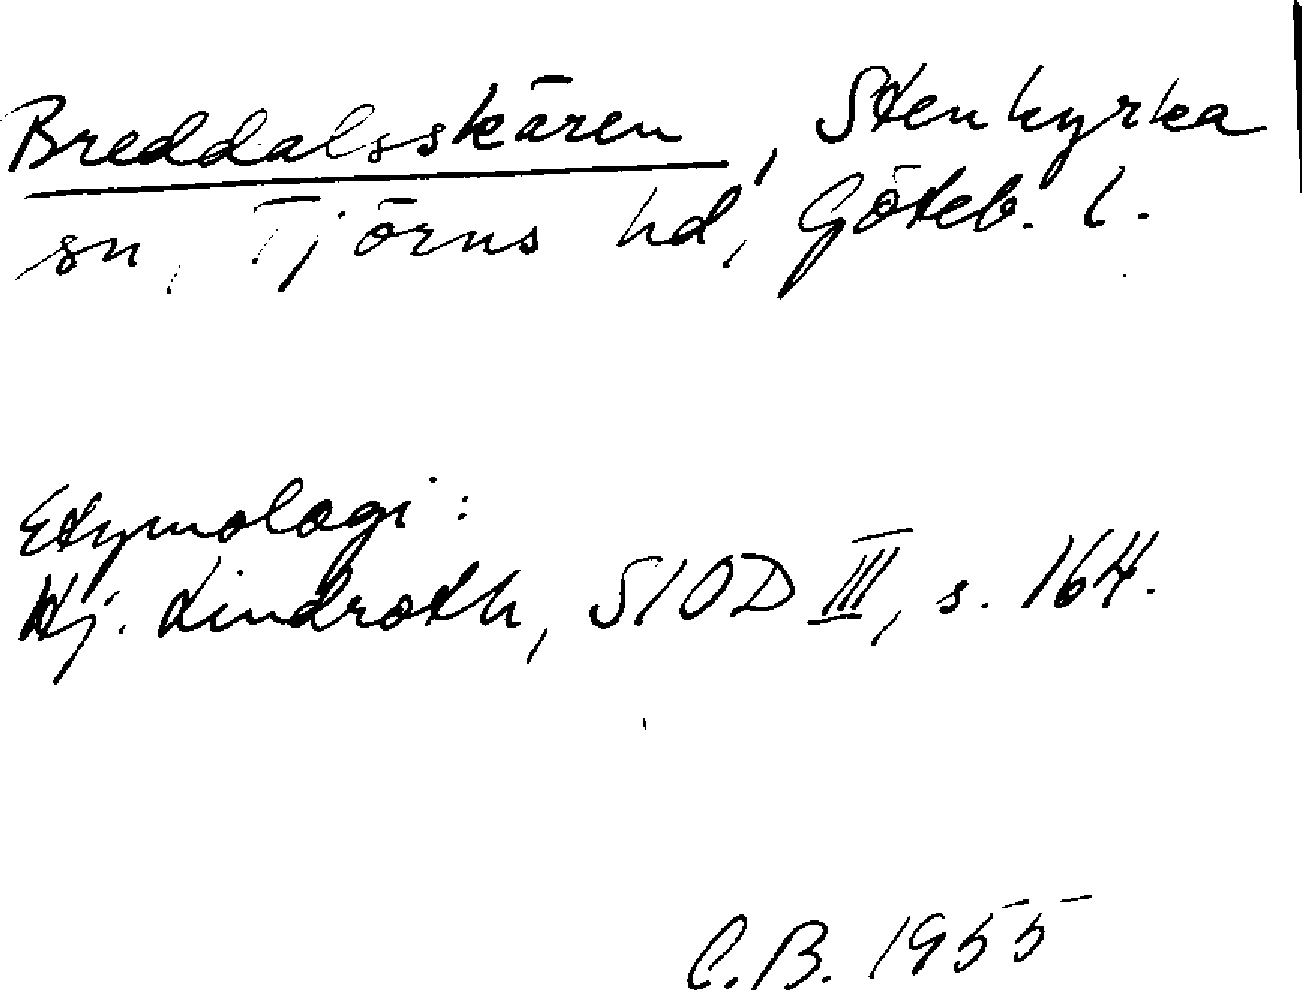 Breddalsskären, Stenkyrka
sn, Tjörns hd, Göteb. l.
Etymologi:
Hj. Lindroth, SIOD III, s. 164.
C.B. 1955